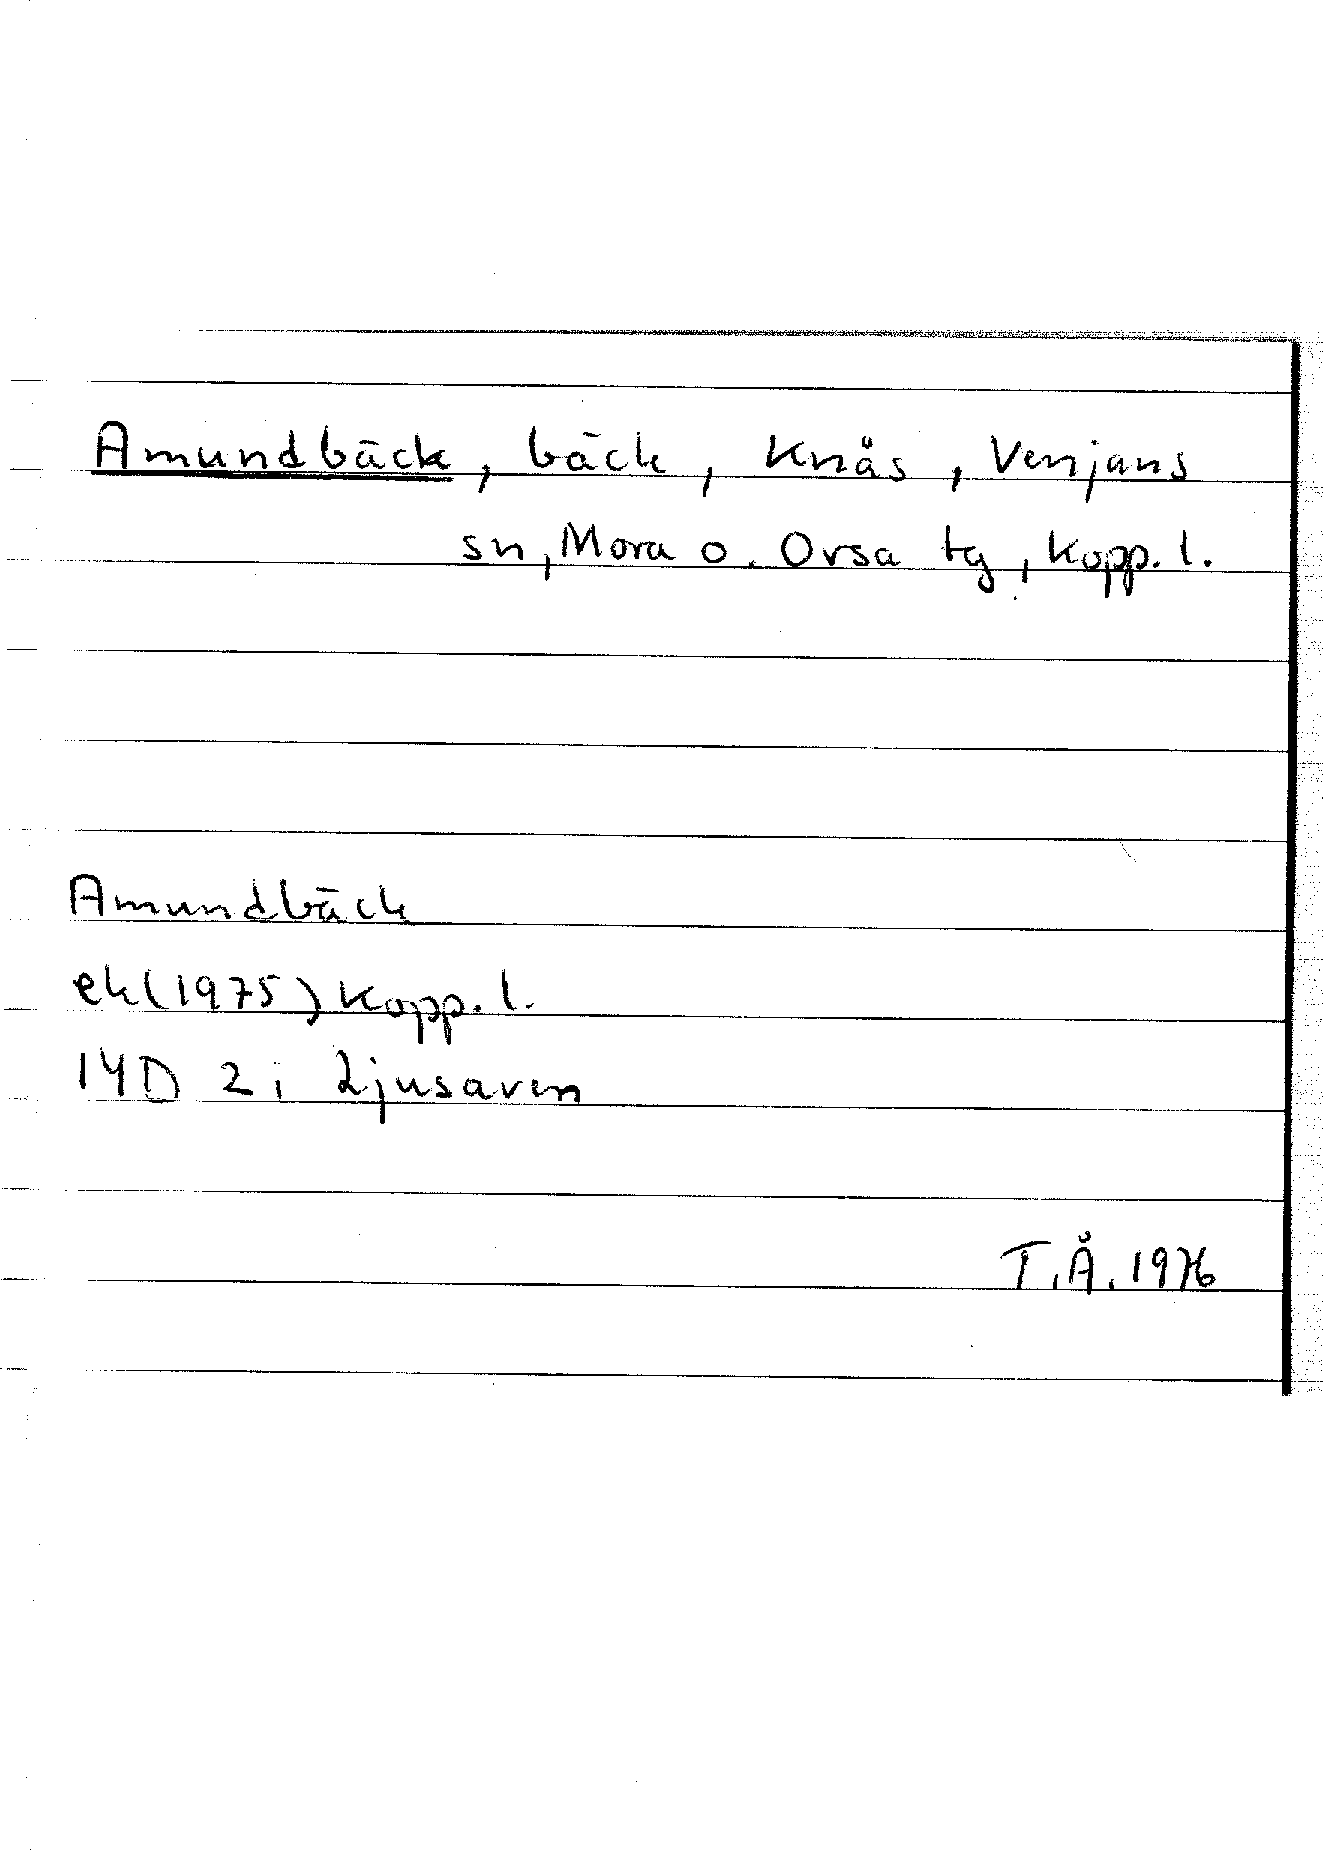 Amundbäck, bäck, Knås, Venjans
sn, Mora o. Orsa tg, Kopp. l.
Amundbäck
ek (1975) Kopp. l.
14D 2i Ljusaven
T.Å. 1976